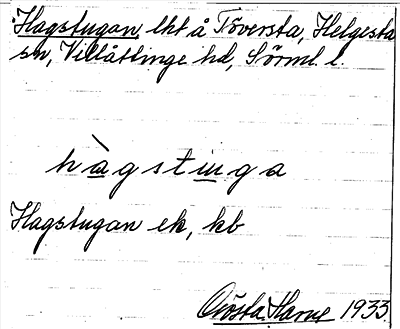 Hagstugan, lht å Töversta, Helgesta
sn, Villåttinge hd, Sörml. l.
hàgstuga
Hagstugan ek, kb
Harne 1933.